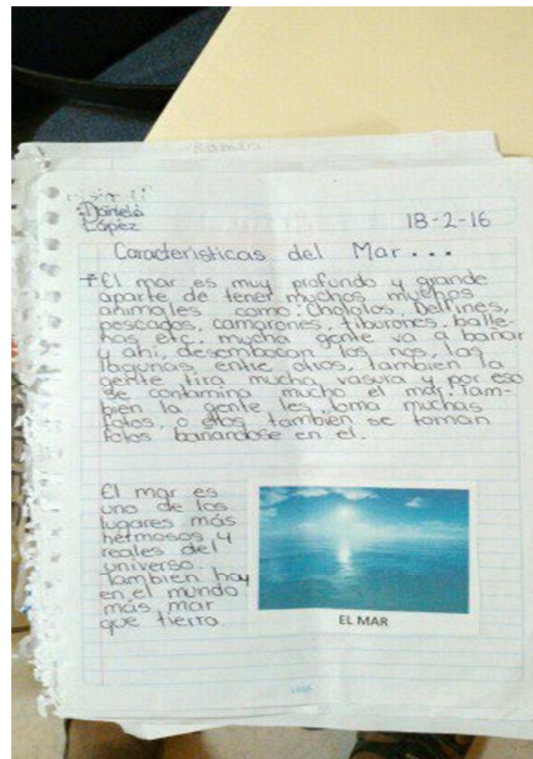 Daniela
López
18-2-16
Características del Mar...
El mar es muy profundo y grande
aparte de tener muchos muchos
animales como: Delfines,
pescados, camarones, tiburones, balle-
nas etc. mucha gente va a bañar
y ahí, desembocan los rios, las
lagunas entre otros, tambien la
gente tira mucha vasura y por eso
se contamina mucho el mar. Tam-
bien la gente les toma muchas
fotos, o ellos también se toman
fotos bañandose en el.
El mar es
uno de los
lugares más
hermosos y
reales del
universo.
Tambien hay
en el mundo
más mar
que tierra.
EL MAR